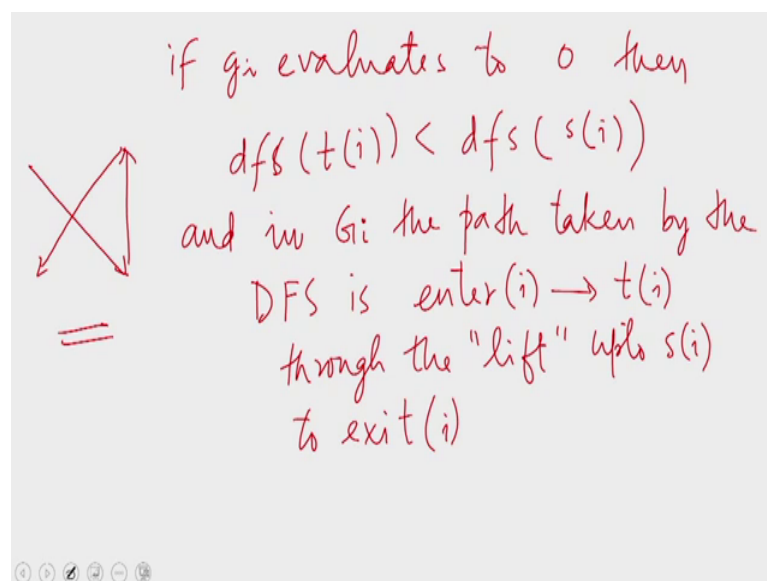 if gi evaluates to 0 then
dfs (t(i)) < dfs (s(i))
and in Gi the path taken by the
DFS is enter(i) → t(i)
through the "lift" upto s(i)
to exit(i)